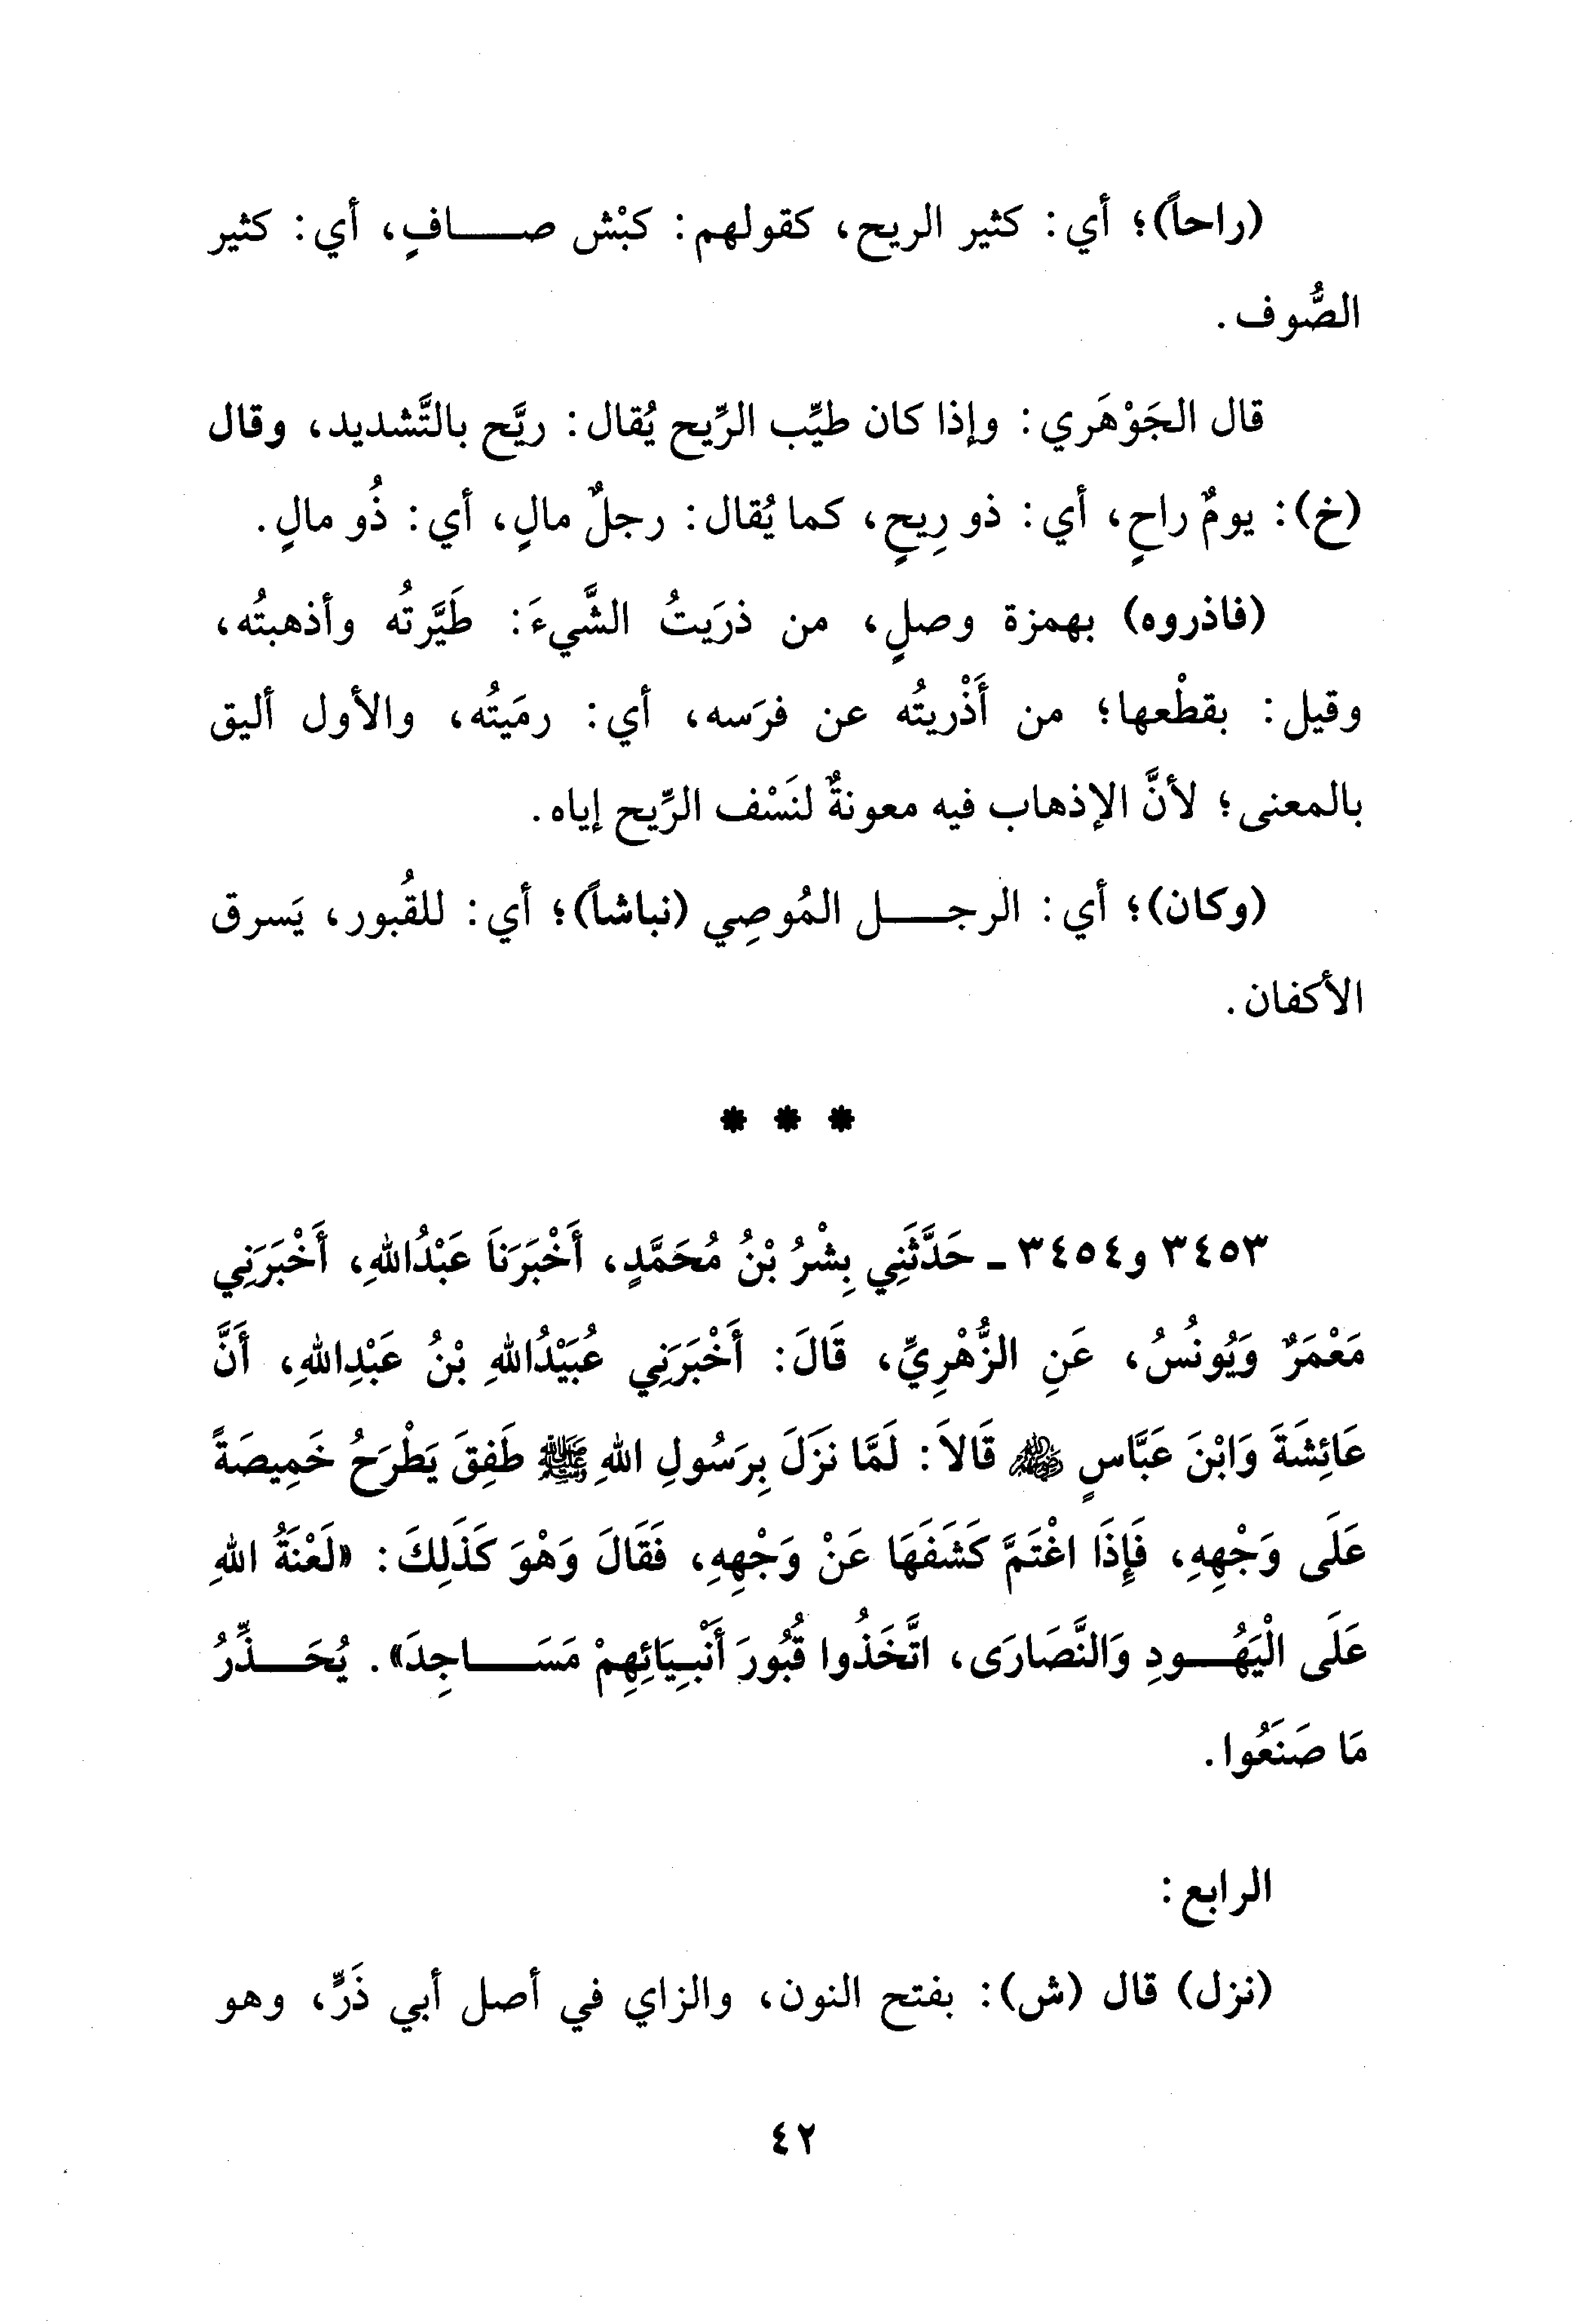 (راحاً)؛ أي: كثير الريح، كقولهم: كبْش صـــافٍ، أي: كثير
الصُّوف.
قال الجَوْهَري: وإذا كان طيِّب الرِّيح يُقال: ريَّح بالتَّشديد، وقال
(خ): يومٌ راحٍ، أي: ذو رِيحٍ، كما يُقال: رجلٌ مالٍ، أي: ذُو مالٍ.
(فاذروه) بهمزة وصلٍ، من ذرَيتُ الشَّيءَ: طَيَّرتُه وأذهبتُه،
وقيل: بقطْعها؛ من أَذْريتُه عن فرَسه، أي: رمَيتُه، والأول أليق
بالمعنى؛ لأنَّ الإذهاب فيه معونةٌ لنَسْف الرِّيح إياه.
(وكان)؛ أي: الرجـــل المُوصِي (نباشاً)؛ أي: للقُبور، يَسرق
الأكفان.
* * *
٣٤٥٣ و٣٤٥٤ ـ حَدَّثَنِي بِشْرُ بْنُ مُحَمَّدٍ، أَخْبَرَنَا عَبْدُاللهِ، أَخْبَرَنِي
مَعْمَرٌ وَيُونُسُ، عَنِ الزُّهْرِيِّ، قَالَ: أَخْبَرَنِي عُبَيْدُاللهِ بْنُ عَبْدِاللهِ، أَنَّ
عَائِشَةَ وَابْنَ عَبَّاسٍ ﵃ قَالاَ: لَمَّا نَزَلَ بِرَسُولِ اللهِ ﷺ طَفِقَ يَطْرَحُ خَمِيصَةً
عَلَى وَجْهِهِ، فَإِذَا اغْتَمَّ كَشَفَهَا عَنْ وَجْهِهِ، فَقَالَ وَهْوَ كَذَلِكَ: «لَعْنَةُ اللهِ
عَلَى الْيَهُـــودِ وَالنَّصَارَى، اتَّخَذُوا قُبُورَ أَنْبِيَائِهِمْ مَسَـــاجِدَ». يُحَـــذِّرُ
مَا صَنَعُوا.
الرابع:
(نزل) قال (ش): بفتح النون، والزاي في أصل أبي ذَرٍّ، وهو
٤٢